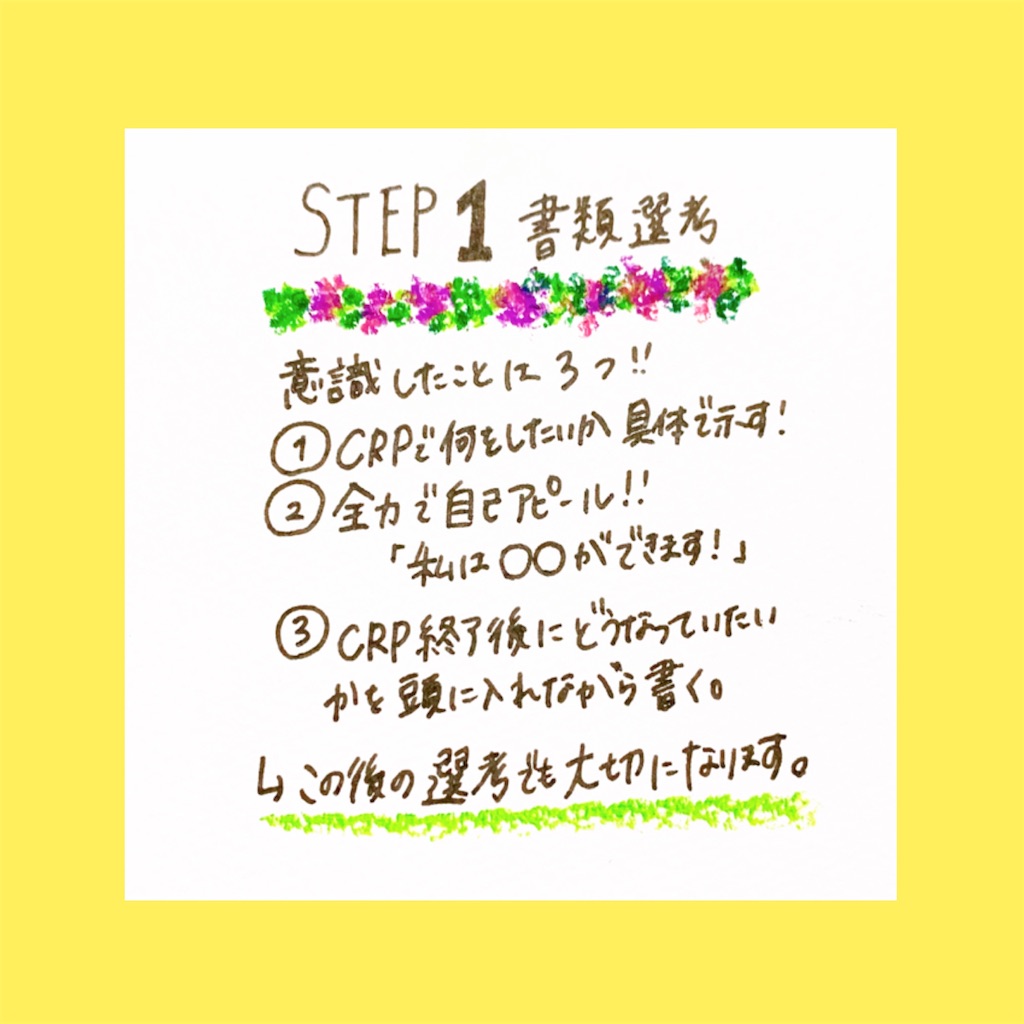 STEP 1 書類選考
意識したことは3つ!!
① CRPで何をしたいか具体で示す!
② 全力で自己アピール!!
「私は○○ができます!」
③ CRP終了後にどうなっていたい
かを頭に入れながら書く。
↳ この後の選考でも大切になります。